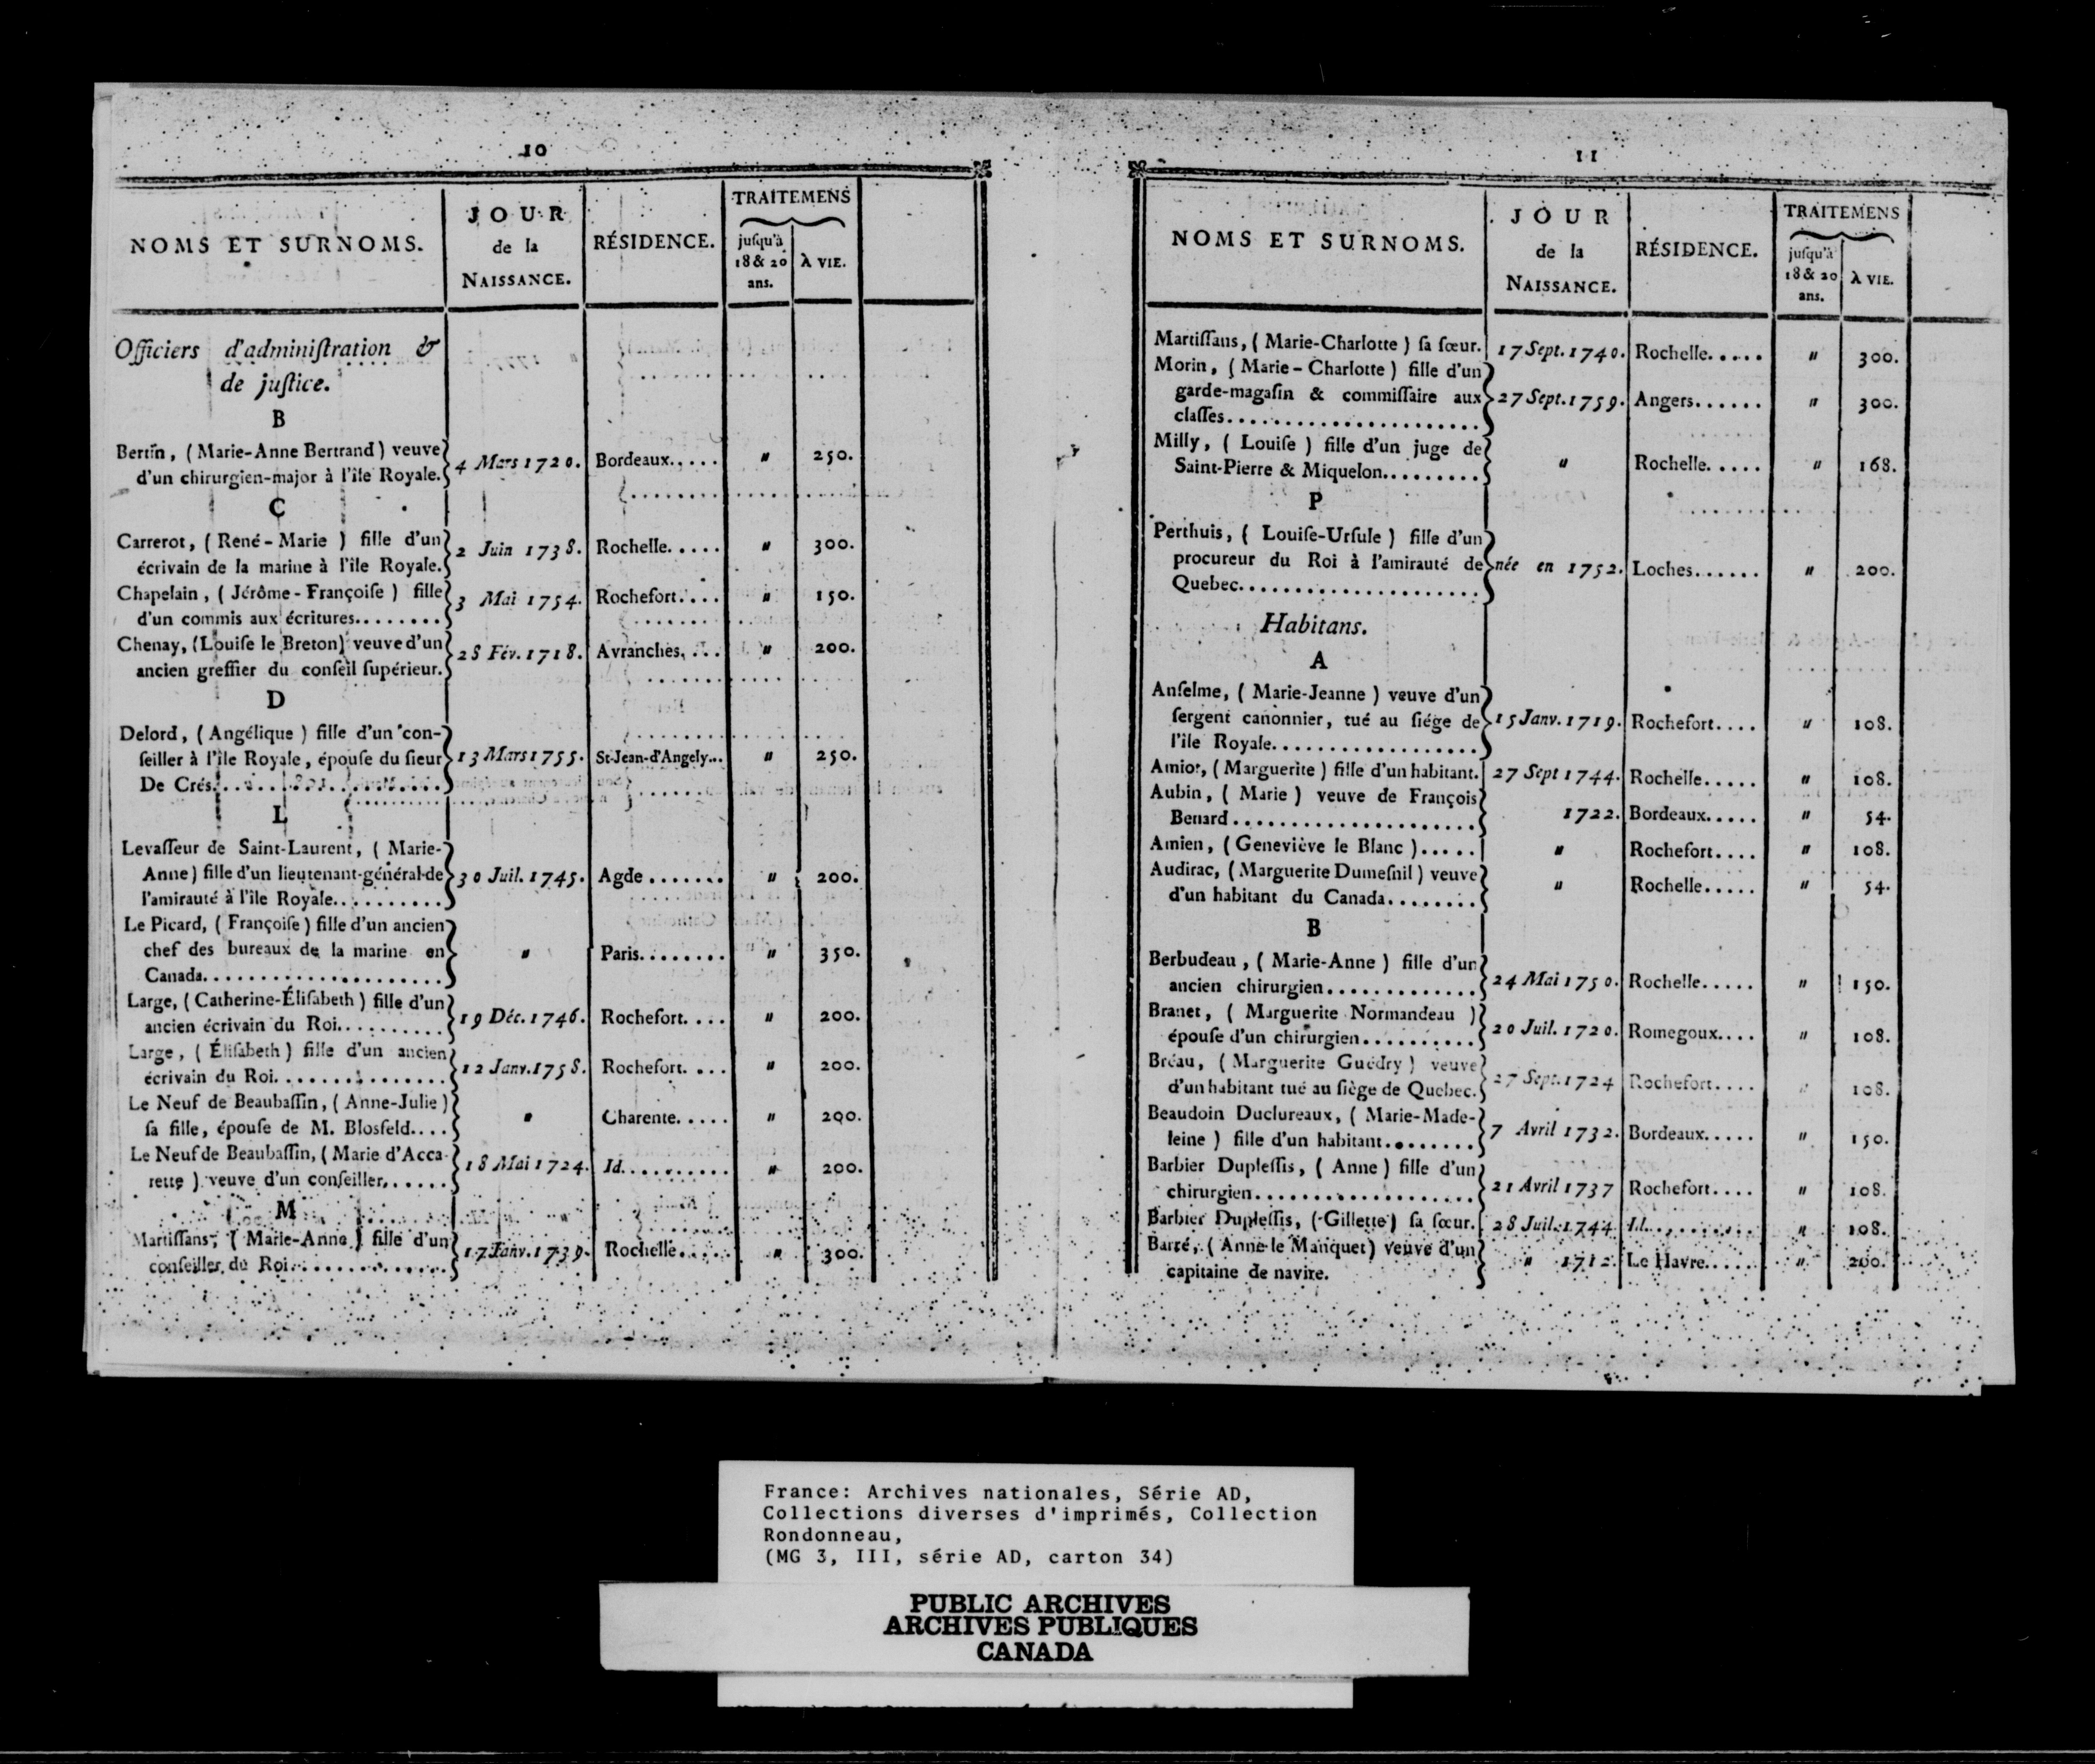 10
NOMS ET SURNOMS.
JOUR
de la
NAISSANCE.
RÉSIDENCE.
TRAITEMENS
juſqu'à
18 & 20
ans.
À VIE.
Officiers d'adminiſtration &
de juſtice.
B
Bertin, ( Marie-Anne Bertrand ) veuve
d'un chirurgien-major à l'île Royale. 4 Mars 1720. Bordeaux..... " 250.
C
Carrerot, ( René-Marie ) fille d'un
écrivain de la marine à l'île Royale. 2 Juin 1738. Rochelle..... " 300.
Chapelain, ( Jérôme-Françoiſe ) fille
d'un commis aux écritures........ 3 Mai 1754. Rochefort.... " 150.
Chenay, (Louiſe le Breton) veuve d'un
ancien greffier du conſeil ſupérieur. 28 Fév. 1718. Avranches.... " 200.
D
Delord, ( Angélique ) fille d'un con-
ſeiller à l'île Royale, épouſe du ſieur 13 Mars 1755. St-Jean-d'Angely... " 250.
De Crés..................
L
Levaſſeur de Saint-Laurent, ( Marie-
Anne) fille d'un lieutenant-général de 30 Juil. 1745. Agde....... " 200.
l'amirauté à l'île Royale..........
Le Picard, ( Françoiſe ) fille d'un ancien
chef des bureaux de la marine en " Paris........ " 350.
Canada.....................
Large, (Catherine-Éliſabeth ) fille d'un
ancien écrivain du Roi.......... 19 Déc. 1746. Rochefort.... " 200.
Large, ( Éliſabeth ) fille d'un ancien
écrivain du Roi............... 12 Janv. 1758. Rochefort.... " 200.
Le Neuf de Beaubaſſin, ( Anne-Julie )
ſa fille, épouſe de M. Blosfeld.... " Charente..... " 200.
Le Neuf de Beaubaſſin, ( Marie d'Acca-
rette ) veuve d'un conſeiller...... 18 Mai 1724. Id.......... " 200.
M
Martiſſans, ( Marie-Anne ) fille d'un
conſeiller du Roi.............. 17 Janv. 1739. Rochelle..... " 300.
11
NOMS ET SURNOMS.
JOUR
de la
NAISSANCE.
RÉSIDENCE.
TRAITEMENS
juſqu'à
18 & 20
ans.
À VIE.
Martiſſans, ( Marie-Charlotte ) ſa ſœur. 17 Sept. 1740. Rochelle..... " 300.
Morin, ( Marie-Charlotte ) fille d'un
garde-magaſin & commiſſaire aux 27 Sept. 1759. Angers...... " 300.
claſſes.......................
Milly, ( Louiſe ) fille d'un juge de
Saint-Pierre & Miquelon......... " Rochelle..... " 168.
P
Perthuis, ( Louiſe-Urſule ) fille d'un
procureur du Roi à l'amirauté de née en 1752. Loches...... " 200.
Quebec......................
Habitans.
A
Anſelme, ( Marie-Jeanne ) veuve d'un
ſergent canonnier, tué au ſiége de 15 Janv. 1719. Rochefort.... " 108.
l'île Royale..................
Amiot, ( Marguerite ) fille d'un habitant. 27 Sept 1744. Rochelle..... " 108.
Aubin, ( Marie ) veuve de François
Benard...................... 1722. Bordeaux..... " 54.
Amien, ( Geneviève le Blanc )..... " Rochefort.... " 108.
Audirac, ( Marguerite Dumeſnil ) veuve
d'un habitant du Canada........ " Rochelle..... " 54.
B
Berbudeau, ( Marie-Anne ) fille d'un
ancien chirurgien............. 24 Mai 1750. Rochelle..... " 150.
Branet, ( Marguerite Normandeau )
épouſe d'un chirurgien.......... 20 Juil. 1720. Romegoux.... " 108.
Bréau, ( Marguerite Guédry ) veuve
d'un habitant tué au ſiège de Quebec. 27 Sept. 1724 Rochefort.... " 108.
Beaudoin Duclureaux, ( Marie-Made-
leine ) fille d'un habitant........ 7 Avril 1732. Bordeaux..... " 150.
Barbier Dupleſſis, ( Anne ) fille d'un
chirurgien.................... 21 Avril 1737 Rochefort.... " 108.
Barbier Dupleſſis, ( Gillette ) ſa ſœur. 28 Juil. 1744 Id.......... " 108.
Barré, ( Anne le Manquet ) veuve d'un
capitaine de navire. " 1712. Le Havre..... " 200.
France: Archives nationales, Série AD,
Collections diverses d'imprimés, Collection
Rondonneau,
(MG 3, III, série AD, carton 34)
PUBLIC ARCHIVES
ARCHIVES PUBLIQUES
CANADA